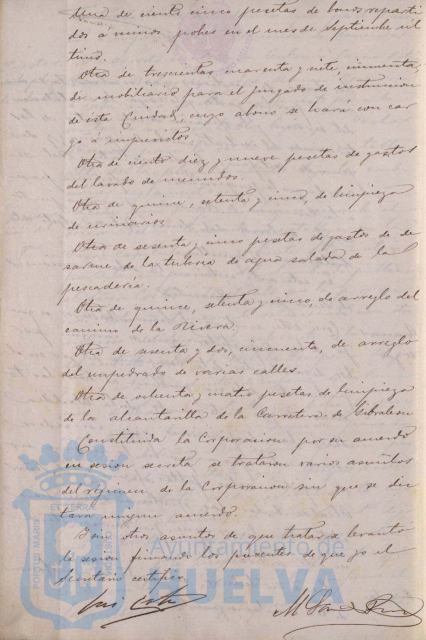 Una de ciento cinco pesetas de bonos reparti
dos a niños pobres en el mes de Septiembre úl
timo.
Otra de trescientas cuarenta y siete, cincuenta,
de mobiliario para el juzgado de instruccion
de esta Ciudad, cuyo abono se hará con car
go á imprevistos.
Otra de ciento diez y nueve pesetas de gastos
del lavado de menudos.
Otra de quince, setenta y cinco, de limpieza
de urinarios.
Otra de sesenta y cinco pesetas de gastos de de
sarme de la tuberia de agua salada de la
pescadería.
Otra de quince, setenta y cinco, de arreglo del
camino de la Rivera.
Otra de sesenta y dos, cincuenta, de arreglo
del empedrado de varias calles.
Otra de ochenta y cuatro pesetas de limpieza
de la alcantarilla de la Carretera de Gibraleon
Constituida la Corporacion por su acuerdo
en sesion secreta se trataron varios asuntos
del régimen de la Corporacion sin que se dic
tara ningun acuerdo.
Y sin otros asuntos de que tratar se levantó
la sesion firmando los presentes de que yo el
Secretario certifico.
PORTUS MARIS
ET TERRÆ
Ayuntamiento de
HUELVA